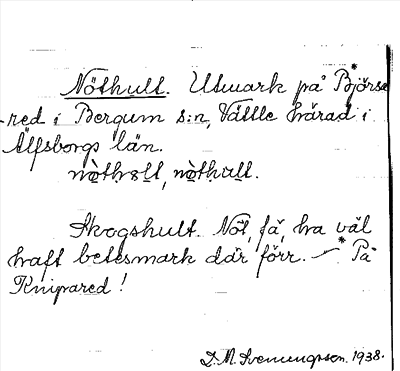 Nöthult. Utmark på Björsa*
-red i Bergum s:n, Vättle härad i
Älfsborgs län.
nòthult, nòthult.
Skogshult. Nöt, fä, ha väl
haft betesmark där förr. — På*
Knipared!
D. M. Svenungsson. 1938.